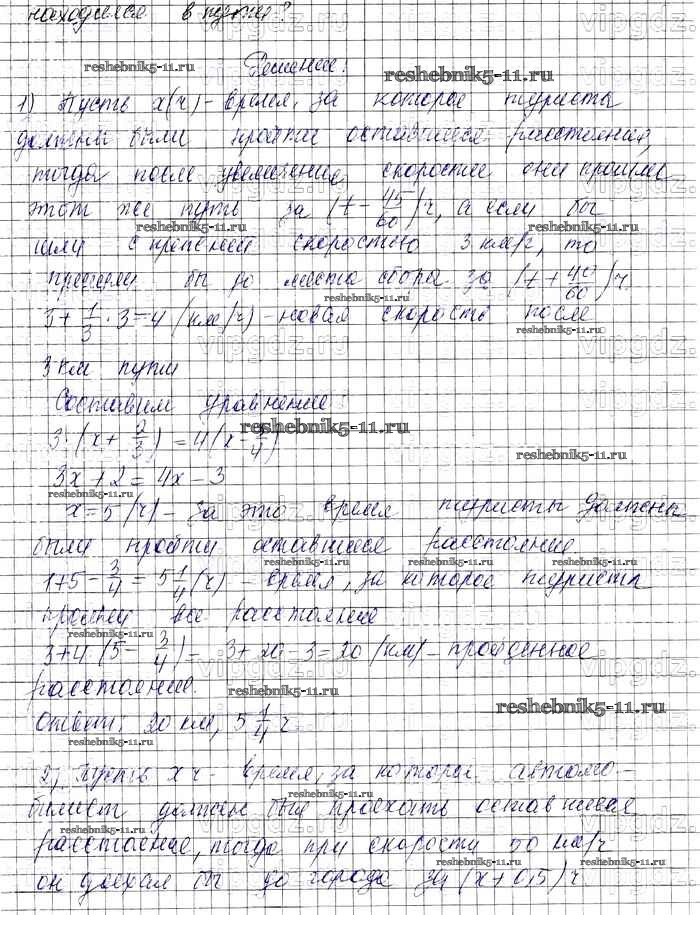 находился в пути?
Решение:
1) Пусть x(ч) - время, за которое туристы
должны были пройти оставшееся расстояние,
тогда после увеличения скорости они прошли
этот же путь за (t - 45/60) ч, а если бы
шли с прежней скоростью 3 км/ч, то
пришли бы до места сбора за (t + 40/60) ч
3 + 1/3 · 3 = 4 (км/ч) - новая скорость после
3 км пути
Составим уравнение:
3 · (x + 2/3) = 4 (x - 3/4)
3x + 2 = 4x - 3
x = 5 (ч) - за это время туристы должны
были пройти оставшееся расстояние
1 + 5 - 3/4 = 5 1/4 (ч) - время, за которое туристы
прошли все расстояние
3 + 4 (5 - 3/4) = 3 + 20 - 3 = 20 (км) - пройденное
расстояние.
Ответ: 20 км, 5 1/4 ч.
2) Пусть x ч - время, за которое автомо-
билист должен был проехать оставшееся
расстояние, тогда при скорости 50 км/ч
он доехал бы до города за (x + 0,5) ч
reshebnik5-11.ru
vipgdz.ru